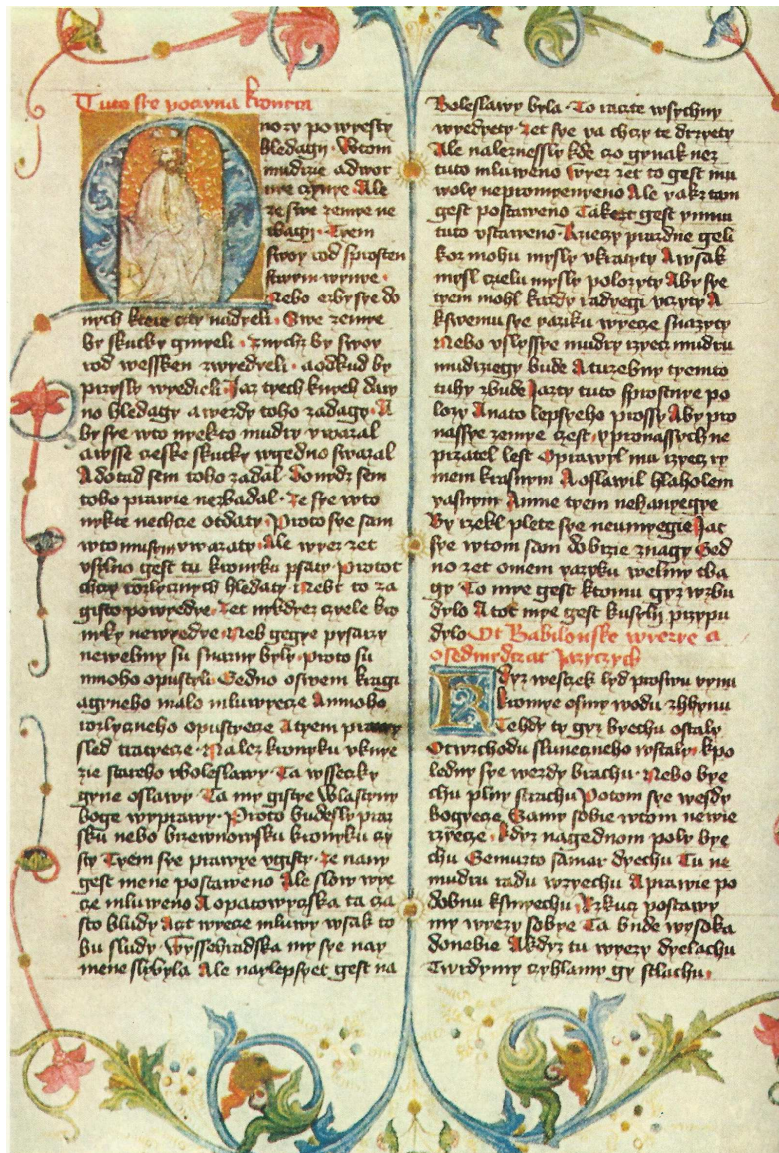 Tuto sie poczyna kronica
nozy powyesty
hledagi · Wtom
mudrzie a dwor
nye czynye Ale
ze swe zemye ne
tbagi · Tyem
swoy rod sprosten
stwym wynye ·
Nebo czbysye do
nych kteie czty nadyeli · Swe zemye
by skutky gmyeli · znychz by swoy
rod wessken zwyedyeli · aodkud by
przysly wyedieli · Jaz tyech knyh daw
no hledagy a werdy toho zadagy · A
by sye wto nyekto mudry vwazal
awsse czeske skutky wgedno swazal
A dotad sem toho zadal Donydz sem
toho prawie nezbadal · ze sye wto
nykte nechcze otdaty · Proto sye sam
wto musym vwazaty · Ale wyez zet
vsylno gest tu kroniku psaty · Protot
chczy rozlycznych hledaty · Nebt to za
gisto powyedye · zet nykdyez czyele kro
nyky newyedye · Neb gegye pysarzy
newelmy su snazny byly · proto su
mnoho opustyli · Gedno oswem kragi
a gyneho malo mluwyecze Amnoho
rozlyczneho opustyecze A tyem
sled tratyecze · Nalez kroniku vknye
zie stareho vboleslawy · Ta wsseczky
gyne oslawy · Ta my gistye Wlastyny
boge wyprawy · Proto budesly praz
sku nebo brzewnowsku kroniku czy
sty Tyem sye prawye vgisty · Ze nany
gest mene postaweno Ale slow wye
cze mluweno A opatowyczska ta cza
sto bludy Acz wyecze mluwy wsak to
bu sludy · Wyssehradska my sye nay
mene slybyla Ale naylepsyet gest na
Boleslawy byla · To raczte wsychny
wyedyety · Zet sye ya chczy te drzyety
Ale naleznessly kde czo gynak nez
tuto mluweno Wyez zet to gest mu
woly nepromyenyeno Ale yakz tam
gest postaweno Takezt gest ynmu
tuto vstaweno · Krzeczy prazdne geli
koz mohu mysly vkratyty A wsak
mysl czelu mysly polozyty Aby sye
tyem mohl kazdy radyegi vczyty A
kswemu sye yaziku wyecze snazyty
Nebo vslysye mudry rzyecz mudru
mudrziegy bude A tuzebny tyemto
tuhy zbude Jazty tuto sprostnye po
lozy A nato lepsyeho prossy Aby pro
nassye zemye czest · y pronassych ne
przatel lest Oprawyl mu rzyecz ry
mem krasnym A oslawil hlaholem
yasnym Amne tyem nehanyegye
By rzekl plete sye neumyegie Jat
sye wtom sam dobrzie znagy Ged
no zet omem yazyku welmy tba
gy To mye gest ktomu gyz wzbu
dylo A tot mye gest kusyly przypu
dylo Ot Babilonske wyezye a
osedmdczat Jazyczych
Kdyz wesczek lyd prostrw vymu
kromye osmy wodu zhhynu
Tehdy ty gyz byechu ostaly
Otwzchodu sluneczneho wstaly · kpo
ledny sye werdy brachu · Nebo bye
chu plny strachu Potom sye wesdy
bogyecze Samy sobie wtom newie
rzyecze · Kdyz nagednom poly bye
chu Gemuzto sanar dyechu Tu ne
mudru radu wzyechu A prawie po
dobnu ksmyechu · Rzkucz postawy
my wyezy sobye Ta bude wysoka
donebie Akdyz tu wyezy dyelachu
Twrdymy czyhlamy gy stlachu ·